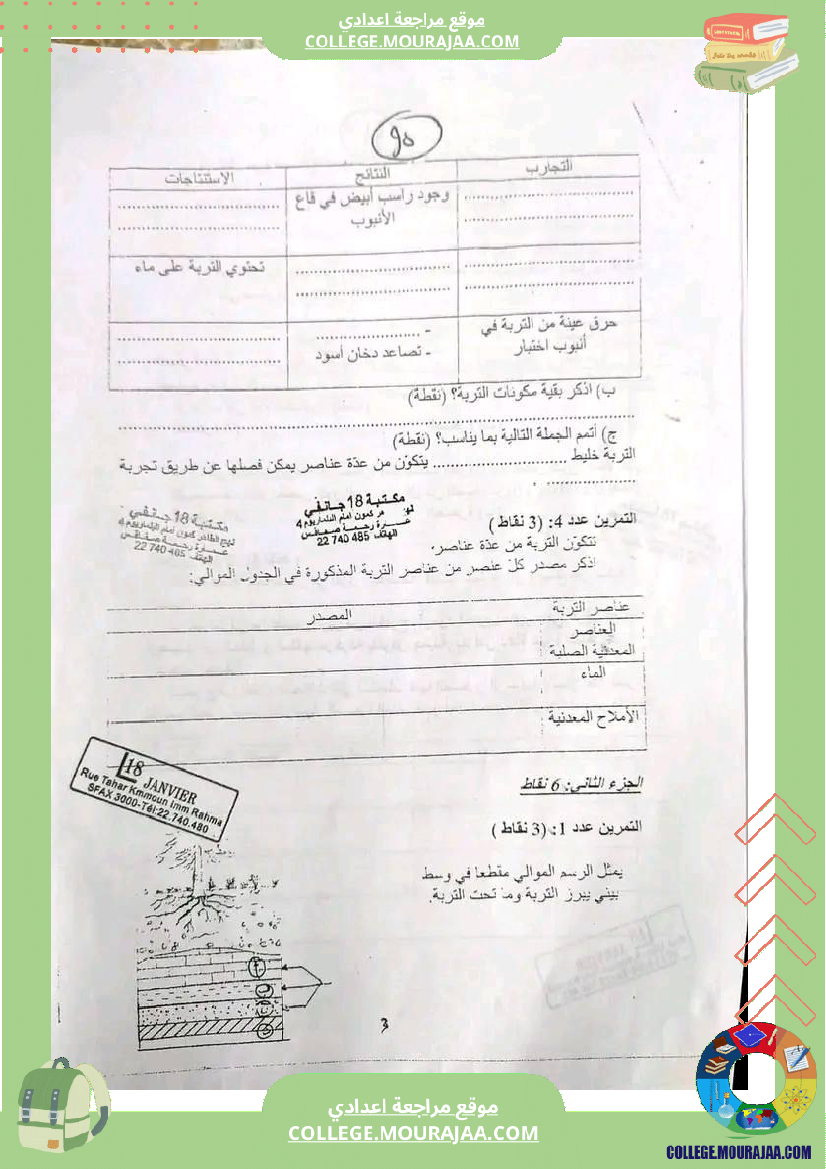 موقع مراجعة اعدادي
COLLEGE.MOURAJAA.COM
التجارب النتائج الاستنتاجات
................................ وجود راسب أبيض في قاع الأنبوب ................................
................................ ................................ تحتوي التربة على ماء
حرق عينة من التربة في أنبوب اختبار - ...................... ................................
- تصاعد دخان أسود ................................
ب) اذكر بقية مكونات التربة؟ (نقطة)
................................................................
ج) أتمم الجملة التالية بما يناسب؟ (نقطة)
التربة خليط ............................ يتكوّن من عدّة عناصر يمكن فصلها عن طريق تجربة
.................. .
مكتبة 18 جانفي
الهاتف 485 740 22
مكتبة 18 جانفي
الهاتف 485 740 22
التمرين عدد 4: (3 نقاط)
تتكوّن التربة من عدّة عناصر.
اذكر مصدر كلّ عنصر من عناصر التربة المذكورة في الجدول الموالي:
عناصر التربة المصدر
العناصر
المعدنية الصلبة
الماء
الأملاح المعدنية
18 JANVIER
Rue Tahar Kmmoun Imm Rahma
SFAX 3000-Tél:22.740.480
الجزء الثاني: 6 نقاط
التمرين عدد 1: (3 نقاط)
يمثل الرسم الموالي مقطعا في وسط
بيئي يبرز التربة وما تحت التربة.
3
موقع مراجعة اعدادي
COLLEGE.MOURAJAA.COM
COLLEGE.MOURAJAA.COM